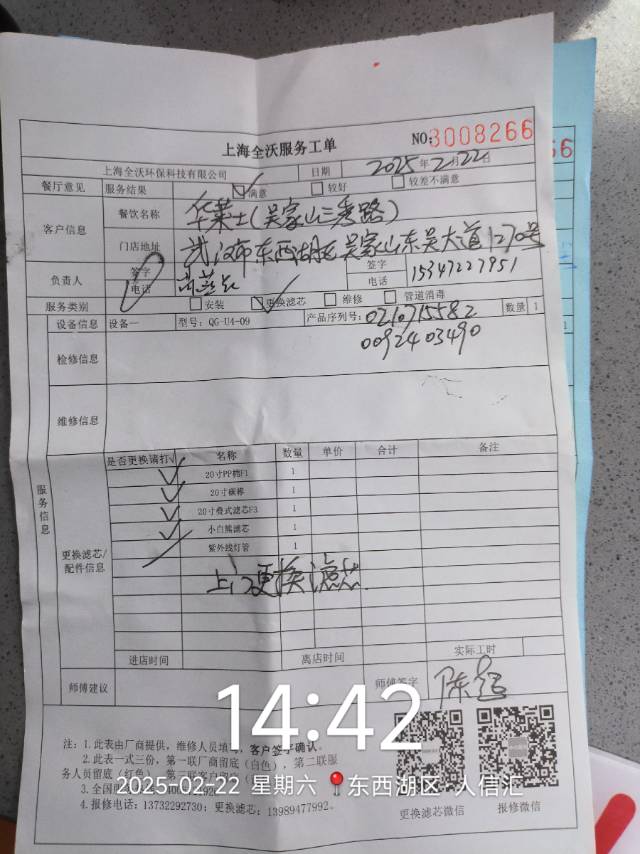 上海全沃服务工单
NO: 3008266
66
上海全沃环保科技有限公司 日期 2025年2月22日
餐厅意见 服务结果 满意 较好 较差不满意
客户信息
餐饮名称 华莱士(吴家山三秀路)
门店地址 武汉市东西湖区吴家山东吴大道1270号
负责人 签字 电话
签字 电话 15347227951
服务类别 安装 更换滤芯 维修 管道消毒
设备信息 设备一 型号: QG-U4-09 产品序列号: 0210715582 数量 1
0092403490
检修信息
维修信息
服务信息
更换滤芯/配件信息
是否更换请打√ 名称 数量 单价 合计 备注
√ 20寸PP棉F1 1
√ 20寸碳棒 1
√ 20寸叠式滤芯F3 1
√ 小白熊滤芯 1
紫外线灯管 1
上门更换滤芯
进店时间 离店时间 实际工时
师傅建议 师傅签字 陈
14:42
注: 1.此表由厂商提供，维修人员填写，客户签字确认。
2.此表一式三份，第一联厂商留底（白色），第二联服
务人员留底（红色），第三联客户留底
2025-02-22 星期六 东西湖区·人信汇
3.全国
4.报修电话: 13732292730; 更换滤芯: 13989477992.
更换滤芯微信 报修微信